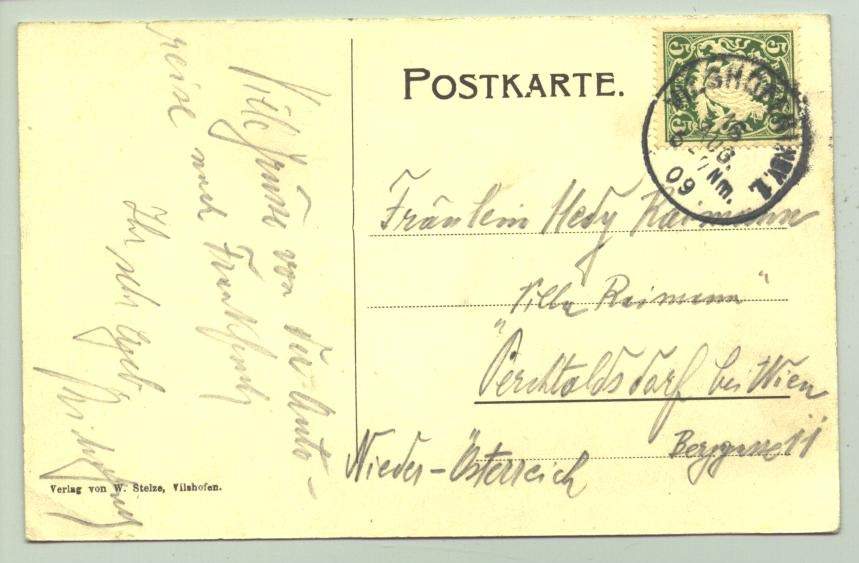 POSTKARTE.
5 5
16
AUG.
Nm.
09
Fräulein Hedy Raimann
"Villa Raimann"
Perchtoldsdorf bei Wien
Berggasse 11
Nieder-Österreich
Viele Grüsse von der Auto-
reise nach Frankfurt
Ihr sehr
Verlag von W. Stelze, Vilshofen.